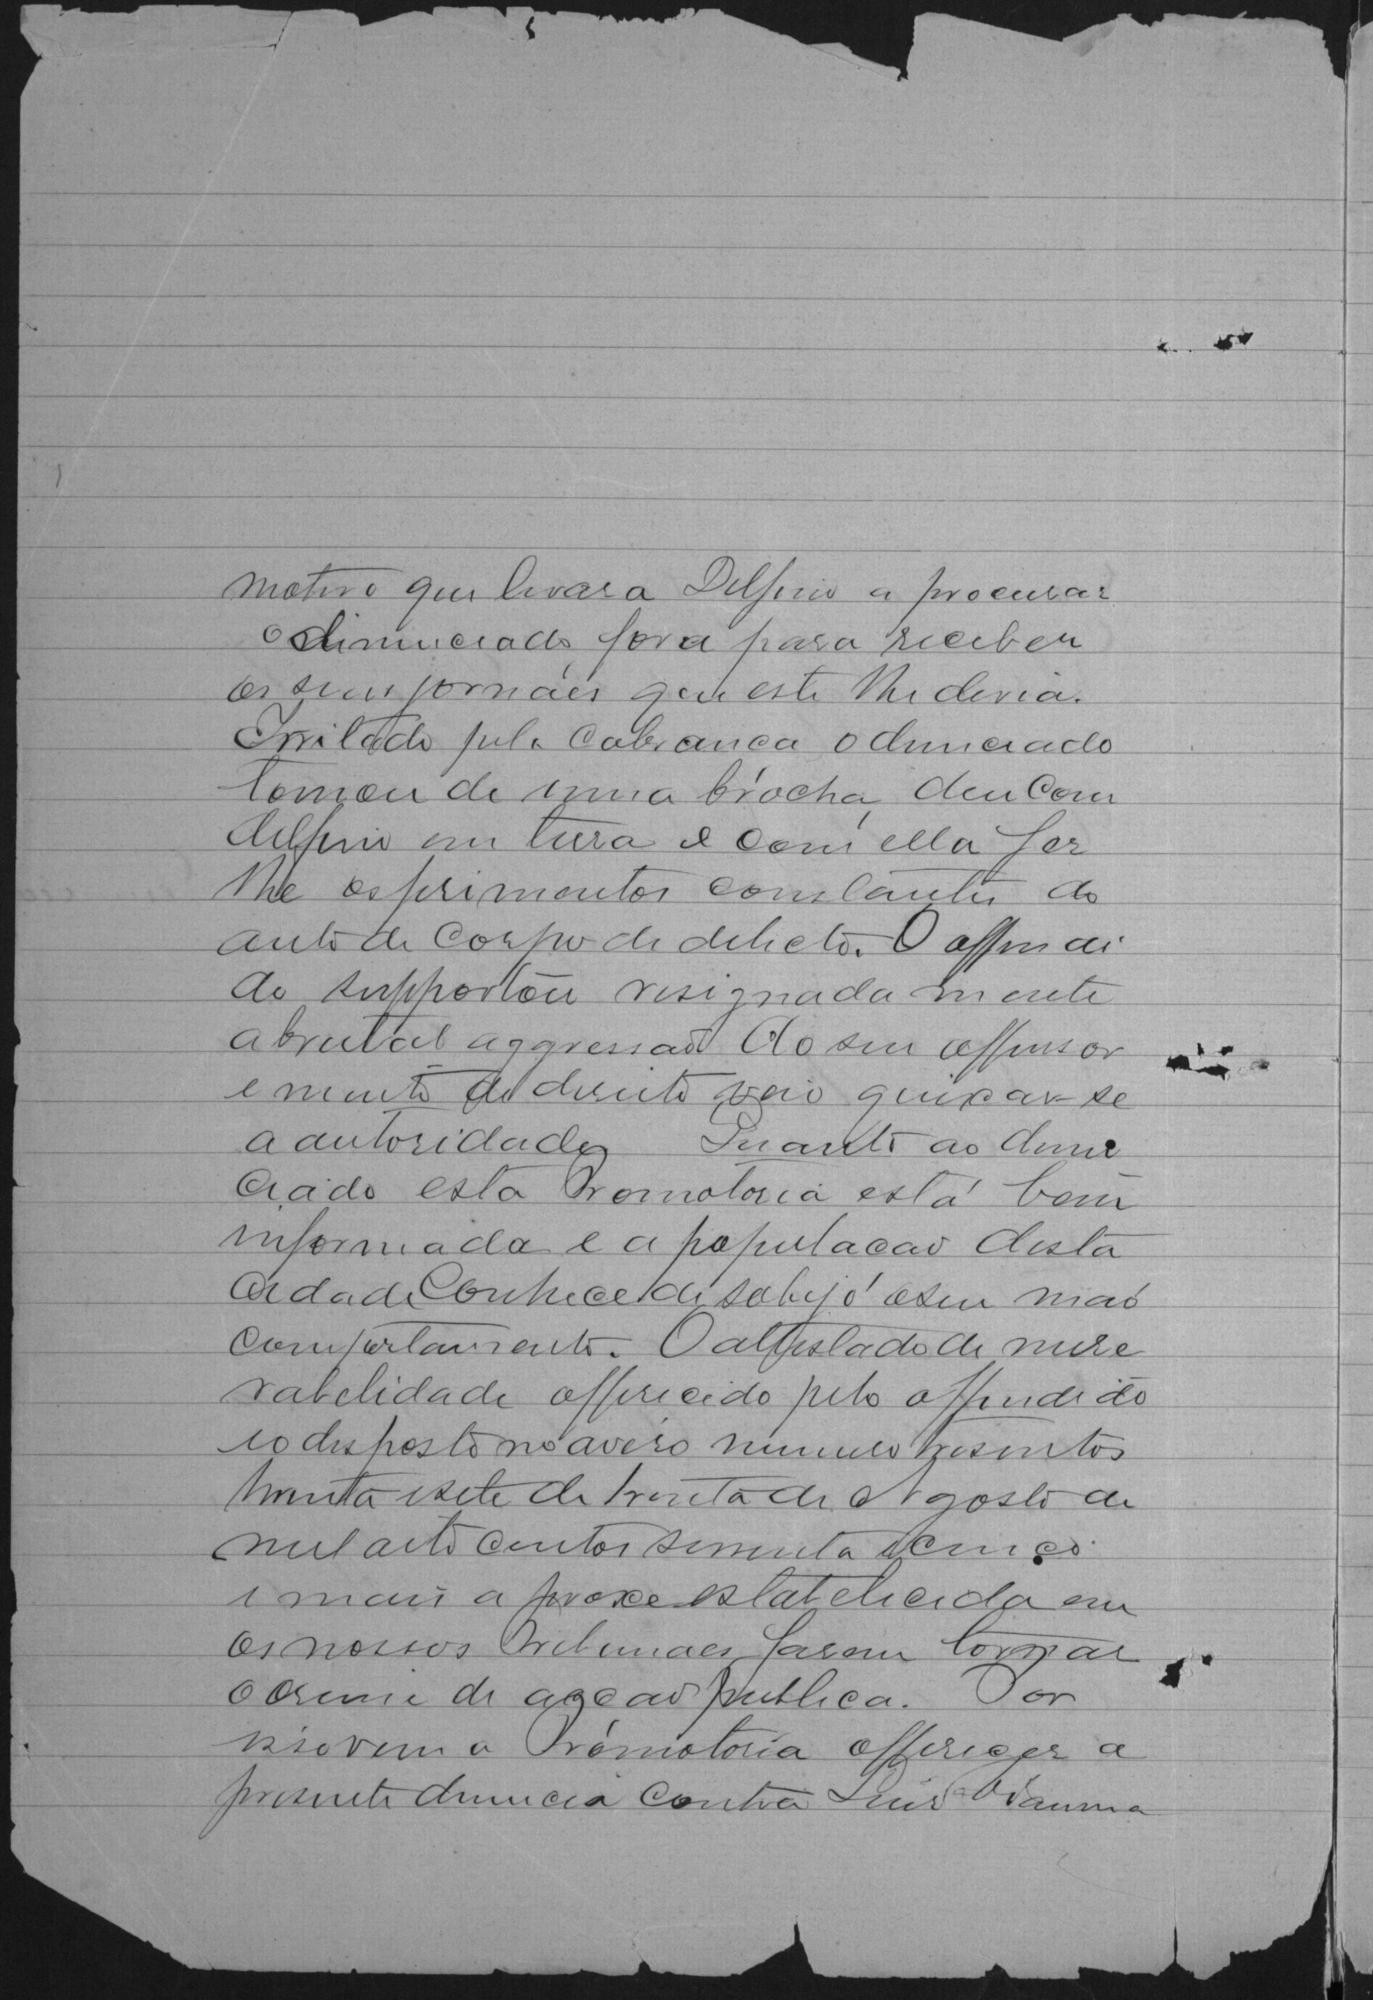 motivo que levara Delfino a procurar
o dinunciado fora para receber
os seus jornáes que este lhe devia.
Irritado pela cobranca o denunciado
tomou de uma brocha, deu com
delfino em terra e com ella fez
lhe os ferimentos constantes do
auto de corpo de delicto. O offendi
do supportou resignadamente
a brutal aggressaõ do seu offensor
e munto de direito veio queixar-se
a autoridade Quanto ao denun
ciado esta Promotoria está bem
informada e a populacao desta
cidade Conhece de sobejo o seu maó
comportamento. O attestado de mise
rabelidade offerecido pelo offendido
e o disposto no aviso numero tresentos
trinta e sete de trinta de Agosto de
mil oito centos sessenta e cinco
e mais a praxe estabelecida em
os nossos Tribunaes fazem tornar
o crime de accaõ publica. Por
isso vem a Promotoria offerecer a
presente denuncia contra Luis Vianna